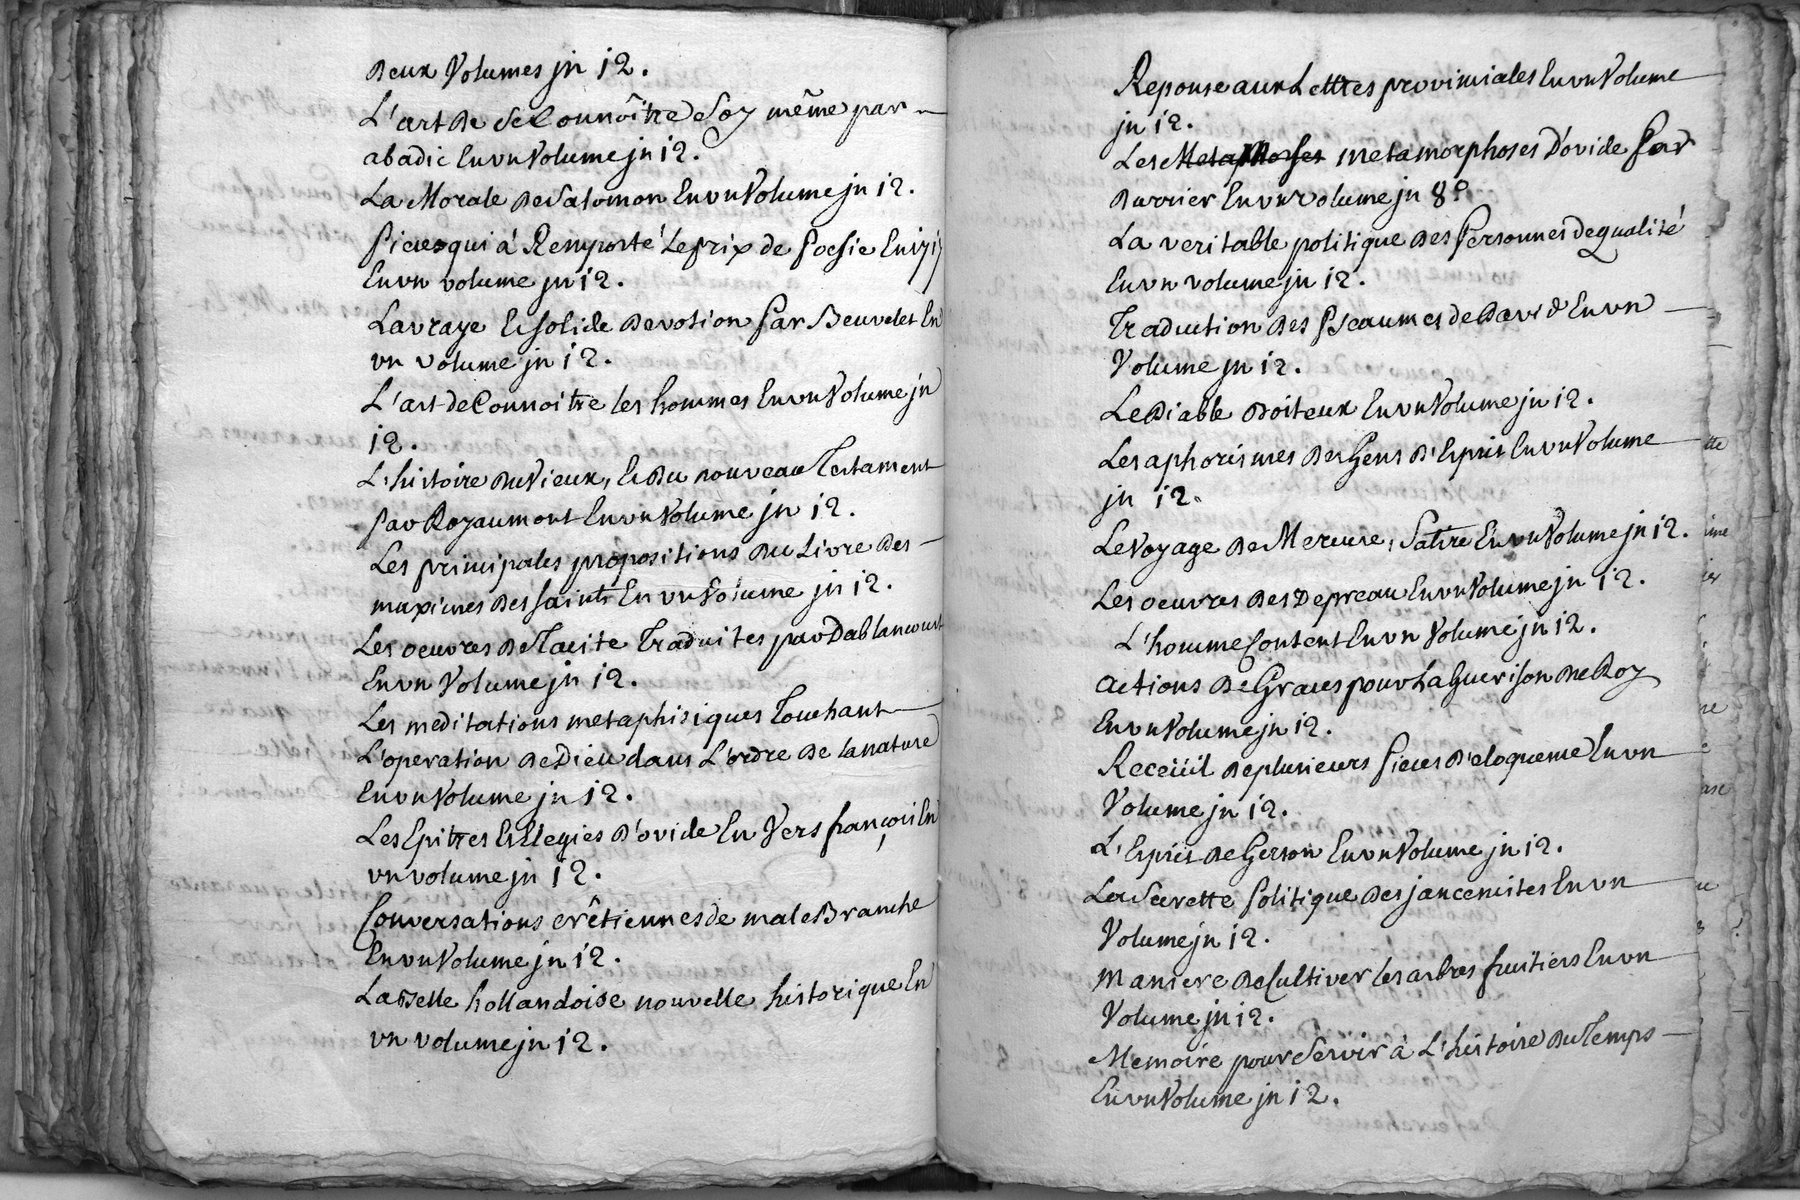 Deux Volumes jn 12.
L'art De se Connoître Soy même par
abadie En vn Volume jn 12.
La Morale De Salomon En vn Volume jn 12.
Pieces qui à Remporté Le prix de Poesie En 1717
En vn volume jn 12.
La vraye Et solide Devotion Par Beuvelet En
vn volume jn 12.
L'art de Connoitre les hommes En vn Volume jn
12.
L'histoire Du Vieux, Et Du nouveau Testament
par Royaumont En vn Volume jn 12.
Les principales propositions Du Livre Des
maximes Des saints En vn Volume jn 12.
Les oeuvres De Tacite Traduites par Dablancourt
En vn Volume jn 12.
Les meditations metaphisiques Touchant
L'operation De Dieu dans L'ordre De la nature
En vn Volume jn 12.
Les Epitres Et Elegies D'ovide En Vers françois En
vn volume jn 12.
Conversations crêtiennes de maleBranche
En vn Volume jn 12.
La Belle hollandoise nouvelle historique En
vn volume jn 12.
Reponse aux Lettres provinciales En vn Volume
jn 12.
Les Metaphorses metamorphoses D'ovide Par
Durrier En vn volume jn 8º
La veritable politique Des Personnes de qualité
En vn volume jn 12.
Traduction Des Pseaumes de David En vn
Volume jn 12.
Le Diable Boiteux En vn Volume jn 12.
Les aphorismes Des Gens D'Esprit En vn Volume
jn 12.
Le Voyage De Mercure, Satire En vn Volume jn 12.
Les oeuvres Des Depreau En vn Volume jn 12.
L'homme Content En vn Volume jn 12.
Actions De Graces pour La Guerison De Roy
En vn Volume jn 12.
Receüil De plusieurs Pieces D'eloquence En vn
Volume jn 12.
L'Esprit De Gerson En vn Volume jn 12.
La Secrette Politique Des jancenites En vn
Volume jn 12.
Maniere De Cultiver les arbres fruitiers En vn
Volume jn 12.
Memoire pour Servir à L'histoire Du Temps
En vn Volume jn 12.